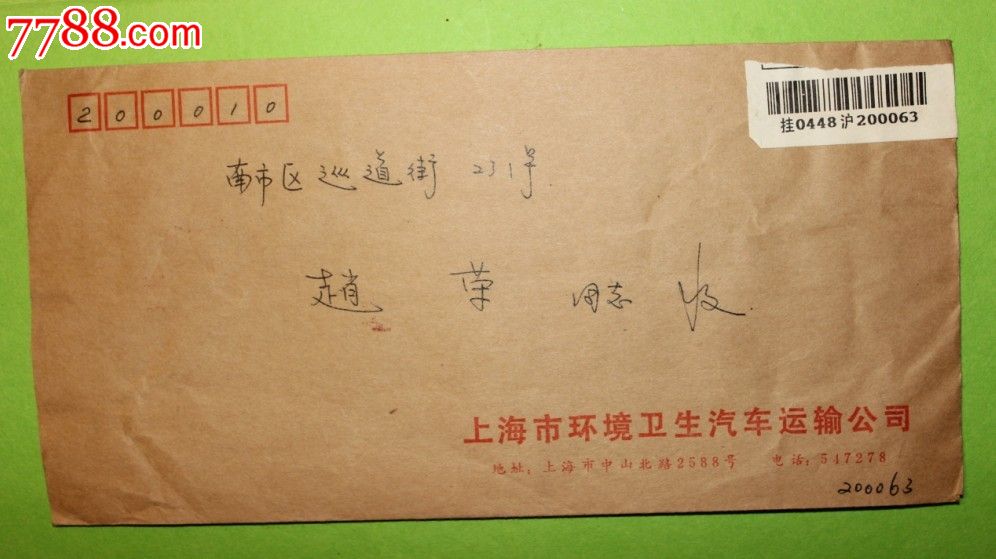 7788.com
200010
挂0448沪200063
南市区巡道街231号
趙荣同志收
上海市环境卫生汽车运输公司
地址：上海市中山北路2588号 电话：547278
200063